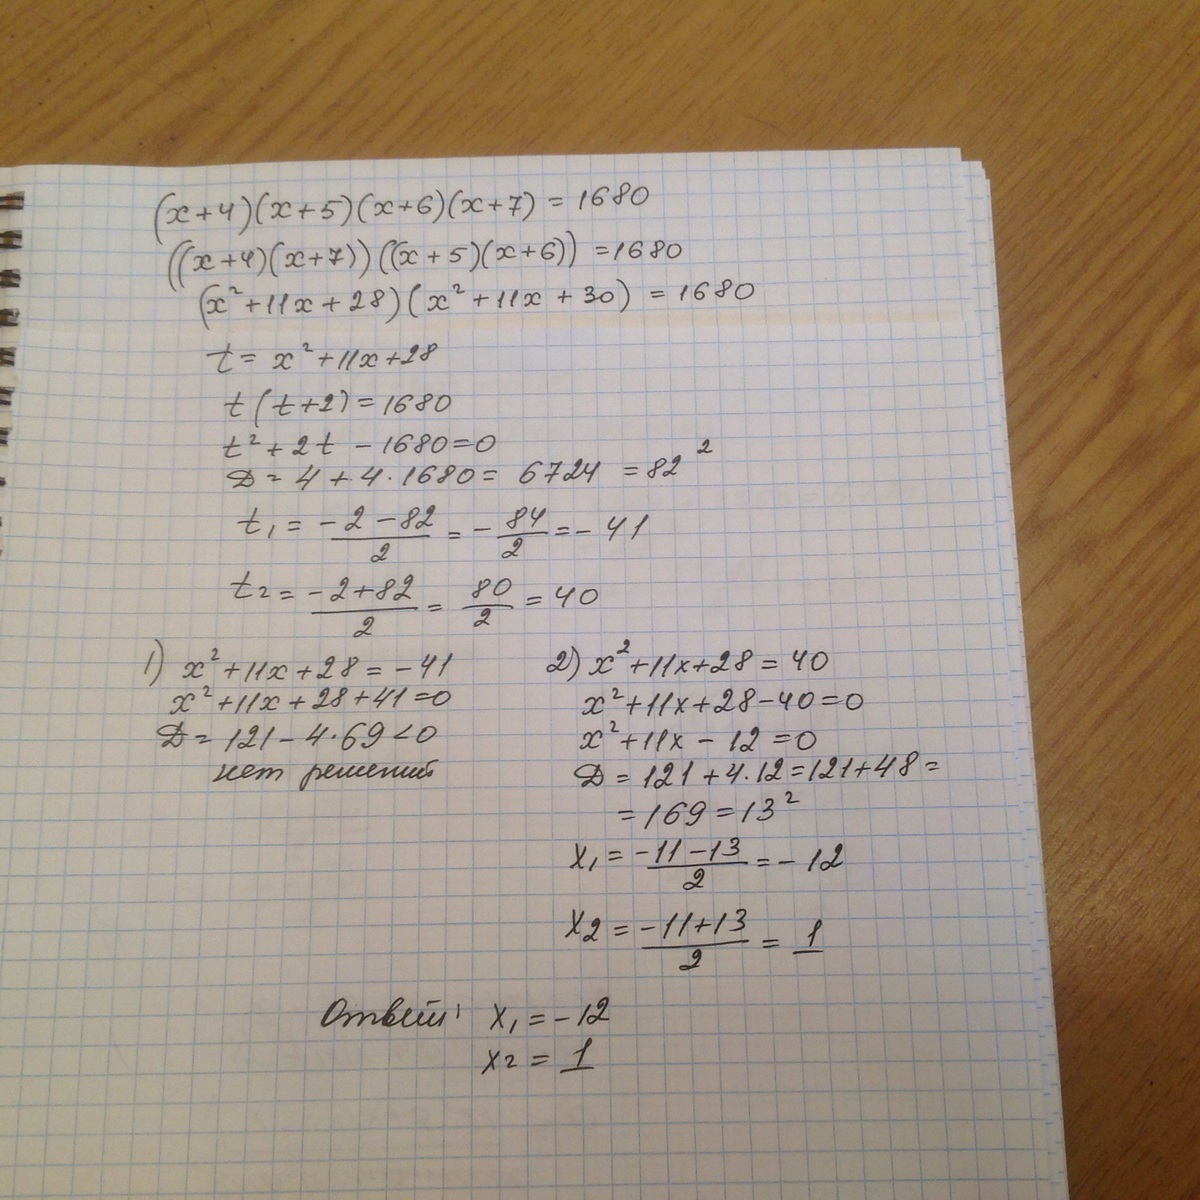 (x+4)(x+5)(x+6)(x+7) = 1680
((x+4)(x+7))((x+5)(x+6)) = 1680
(x²+11x+28)(x²+11x+30) = 1680
t = x²+11x+28
t(t+2) = 1680
t²+2t-1680=0
D = 4+4·1680 = 6724 = 82²
t₁ = (-2-82)/2 = -84/2 = -41
t₂ = (-2+82)/2 = 80/2 = 40
1) x²+11x+28 = -41
x²+11x+28+41=0
D = 121-4·69<0
нет решений
2) x²+11x+28 = 40
x²+11x+28-40=0
x²+11x-12=0
D = 121+4·12=121+48=
=169=13²
x₁ = (-11-13)/2 = -12
x₂ = (-11+13)/2 = 1
Ответ: x₁ = -12
x₂ = 1